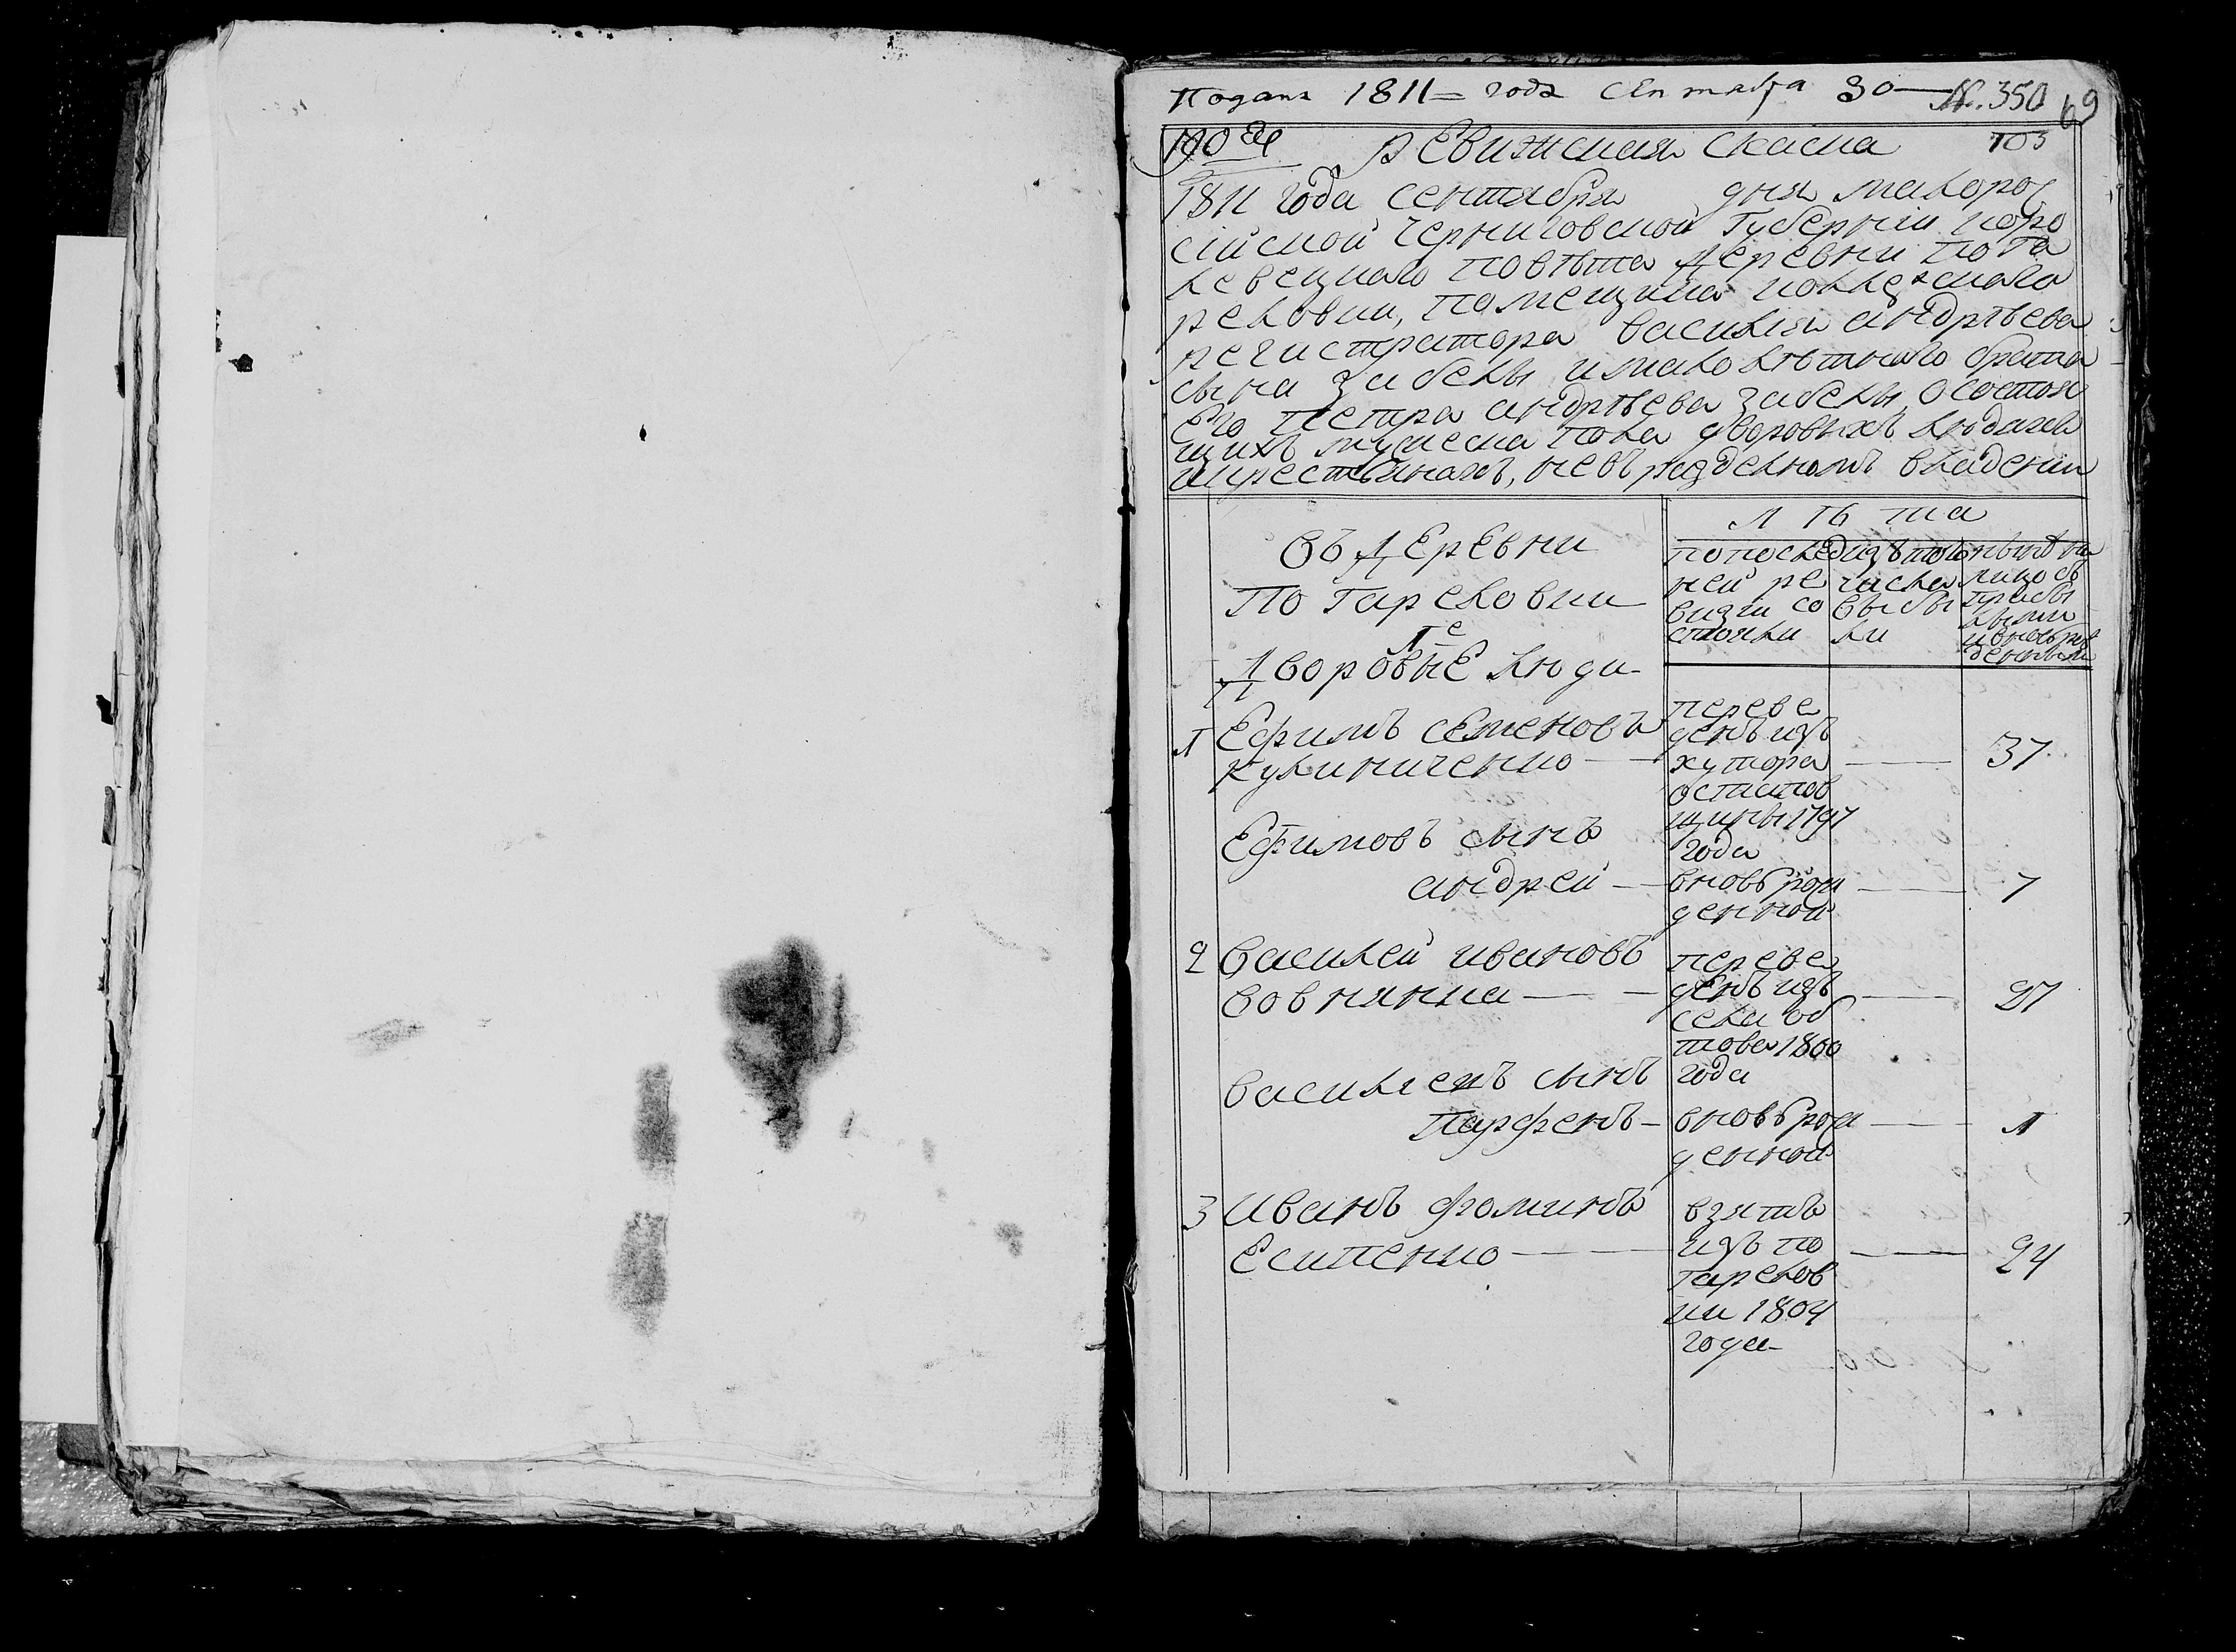 Подана 1811 = года сентября 30 — №. 350 69
190ая ревижская скаска 103
1811 года сентября дня малорос
сійской черниговской губерніи коро
левецкаго повѣта деревни пота
реловки, помещика коллежскаго
регистратора василія андрѣева
сына забелы и малолѣтнаго брата
его петра андрѣева забелы, о состоя
щихъ мужеска пола дворовыхъ людяхъ
и крестьянахъ, не въ разделномъ владении
Лѣта
Въ деревни
Потареловки
1е
Дворовые люди
по послед
ней ре
визіи со
стояли
изъ того
числа
выбы
ли
ныне на
лицо съ
прибы
лыми
и вновь рож
денными
1 Ефимъ семеновъ
Кулиниченко —
переве
денъ изъ
хутора
остатов
щины 1797
года
— 37
Ефимовъ сынъ
андрей —
вновь рож
денной
— 7
2 Василей ивановъ
вовнянка —
переве
денъ изъ
села об
това 1800
года
— 27
василіевъ сынъ
парфенъ —
вновь рож
денной
— 1
3 Иванъ фоминъ
Есипенко —
взятъ
изъ по
тарелов
ки 1804
года
— 24